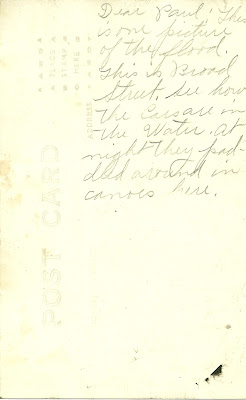 Dear Paul! This
is one picture
of the flood.
This is Broad
Street. See how
the Cars are in
the Water. at
night they pad-
dled around in
canoes here.
POST CARD
ADDRESS
PLACE
STAMP
HERE